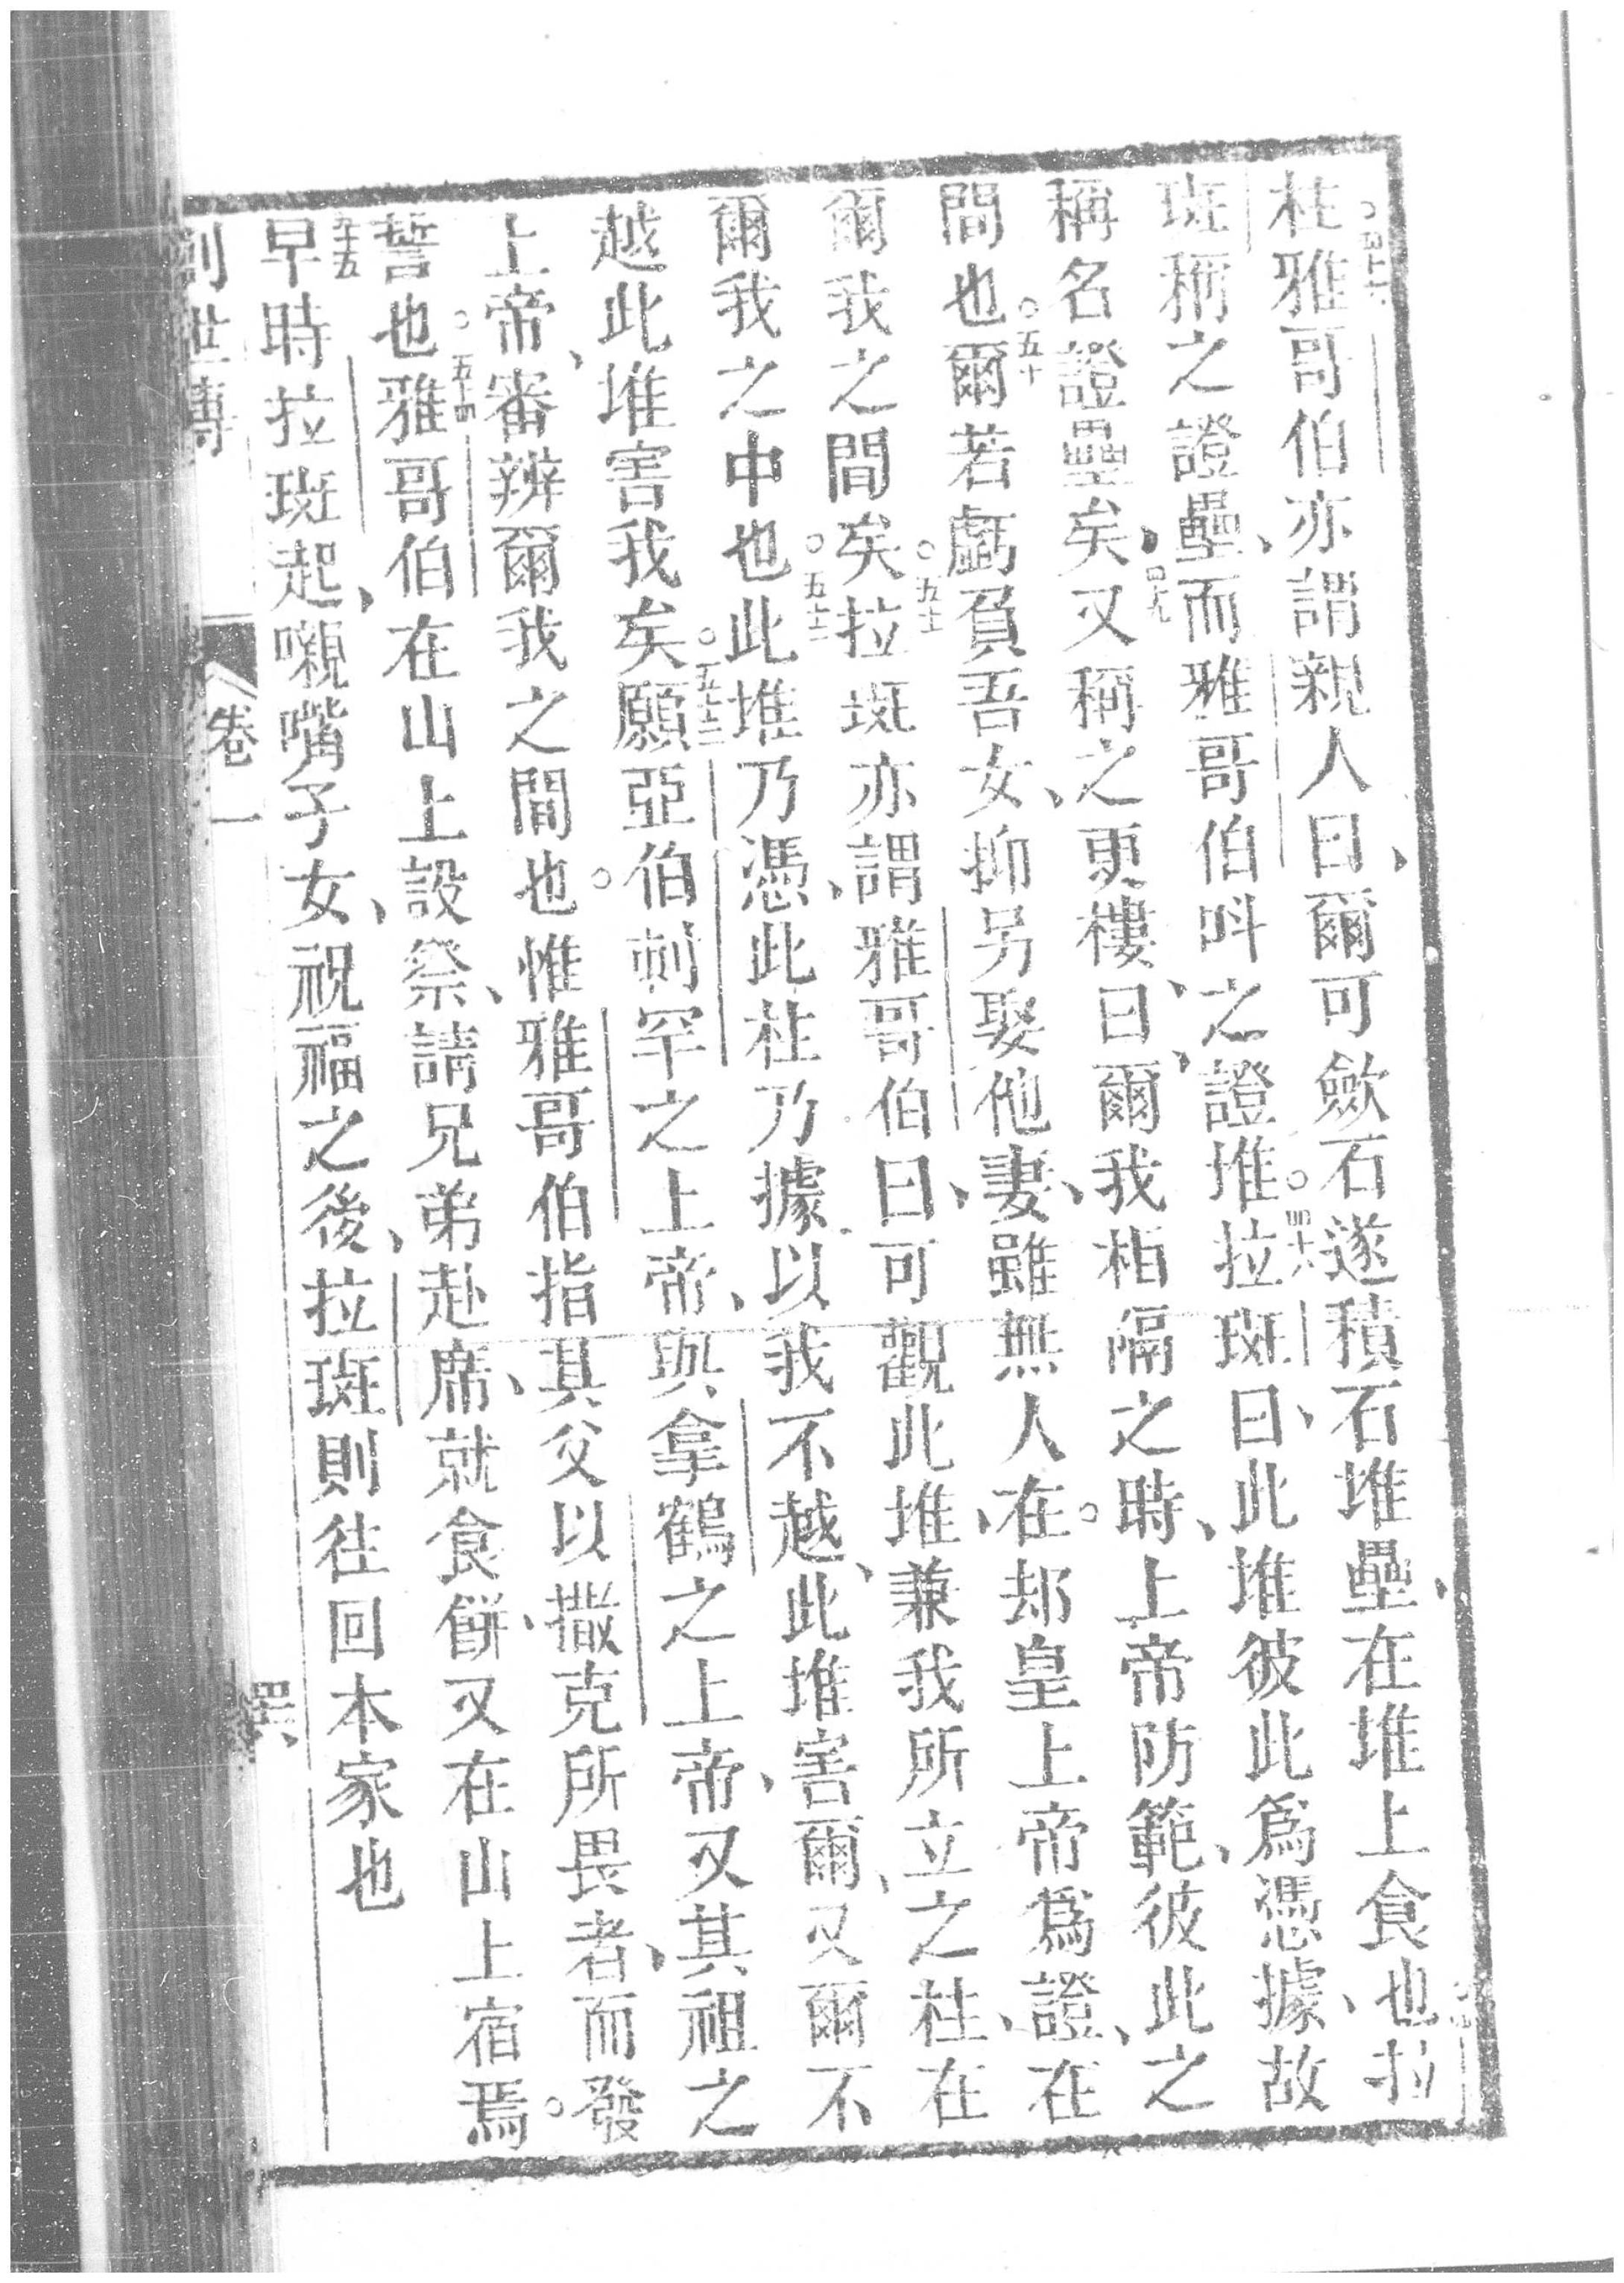 柱雅哥伯亦謂親人曰、爾可歛石遂積石堆壘、在堆上食也拉
斑稱之證壘、而雅哥伯呌之證堆。四十八拉斑曰、此堆彼此爲憑據、故
稱名證壘矣、四九又稱之更樓、曰、爾我相隔之時、上帝防範、彼此之
間也。五十爾若虧負吾女、抑另娶他妻、雖無人在。却皇上帝爲證、在
爾我之間矣。五十一拉斑亦謂雅哥伯曰、可觀此堆、兼我所立之柱、在
爾我之中也。五十二此堆乃憑、此柱乃據、以我不越、此堆害爾、又爾不
越此堆害我矣。五十三願亞伯刺罕之上帝、與拿鶴之上帝、又其祖之
上帝、審辨爾我之間也。惟雅哥伯指其父以撒克所畏者、而發
誓也。五十四雅哥伯在山上設祭、請兄弟赴席、就食餅、又在山上宿焉。
五十五早時拉斑起、嚫嘴子女、祝福之後、拉斑則往回本家也
創世傳 卷一